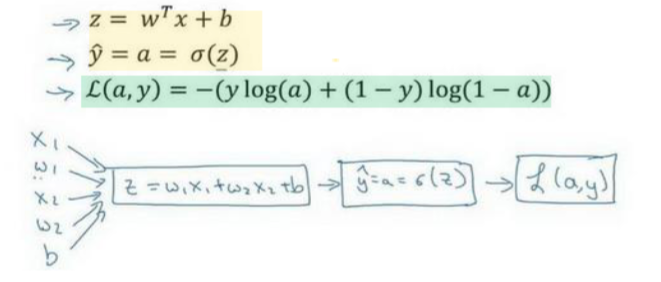 → z = wᵀx + b
→ ŷ = a = σ(z)
→ ℒ(a, y) = −(y log(a) + (1 − y) log(1 − a))
x₁
w₁
x₂
w₂
b
z = w₁x₁ + w₂x₂ + b → ŷ = a = σ(z) → ℒ(a, y)